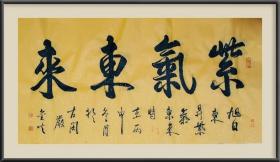 紫氣東來
旭日
東
昇紫
氣
東來
時
在丙
申
冬月
於
古閩